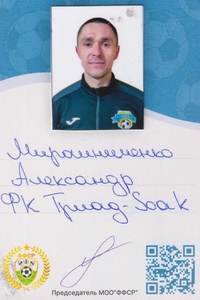 Мирошниченко
Александр
ФК Триад-Soak
ФФСР
Председатель МОО"ФФСР"